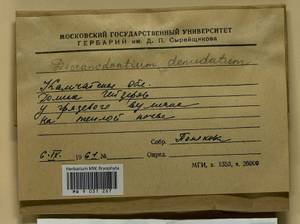 МОСКОВСКИЙ ГОСУДАРСТВЕННЫЙ УНИВЕРСИТЕТ
ГЕРБАРИЙ им. Д. П. Сырейщикова
Dicranodontium denudatum
Камчатская обл.
Долина гейзеров
у грязевого вулкана
на теплой почве
Собр.
6.IX. 1961 № Опред.
МГУ, з. 1353, т. 26000
Herbarium MW, Bryophyta
M W 9 0 3 1 2 6 7